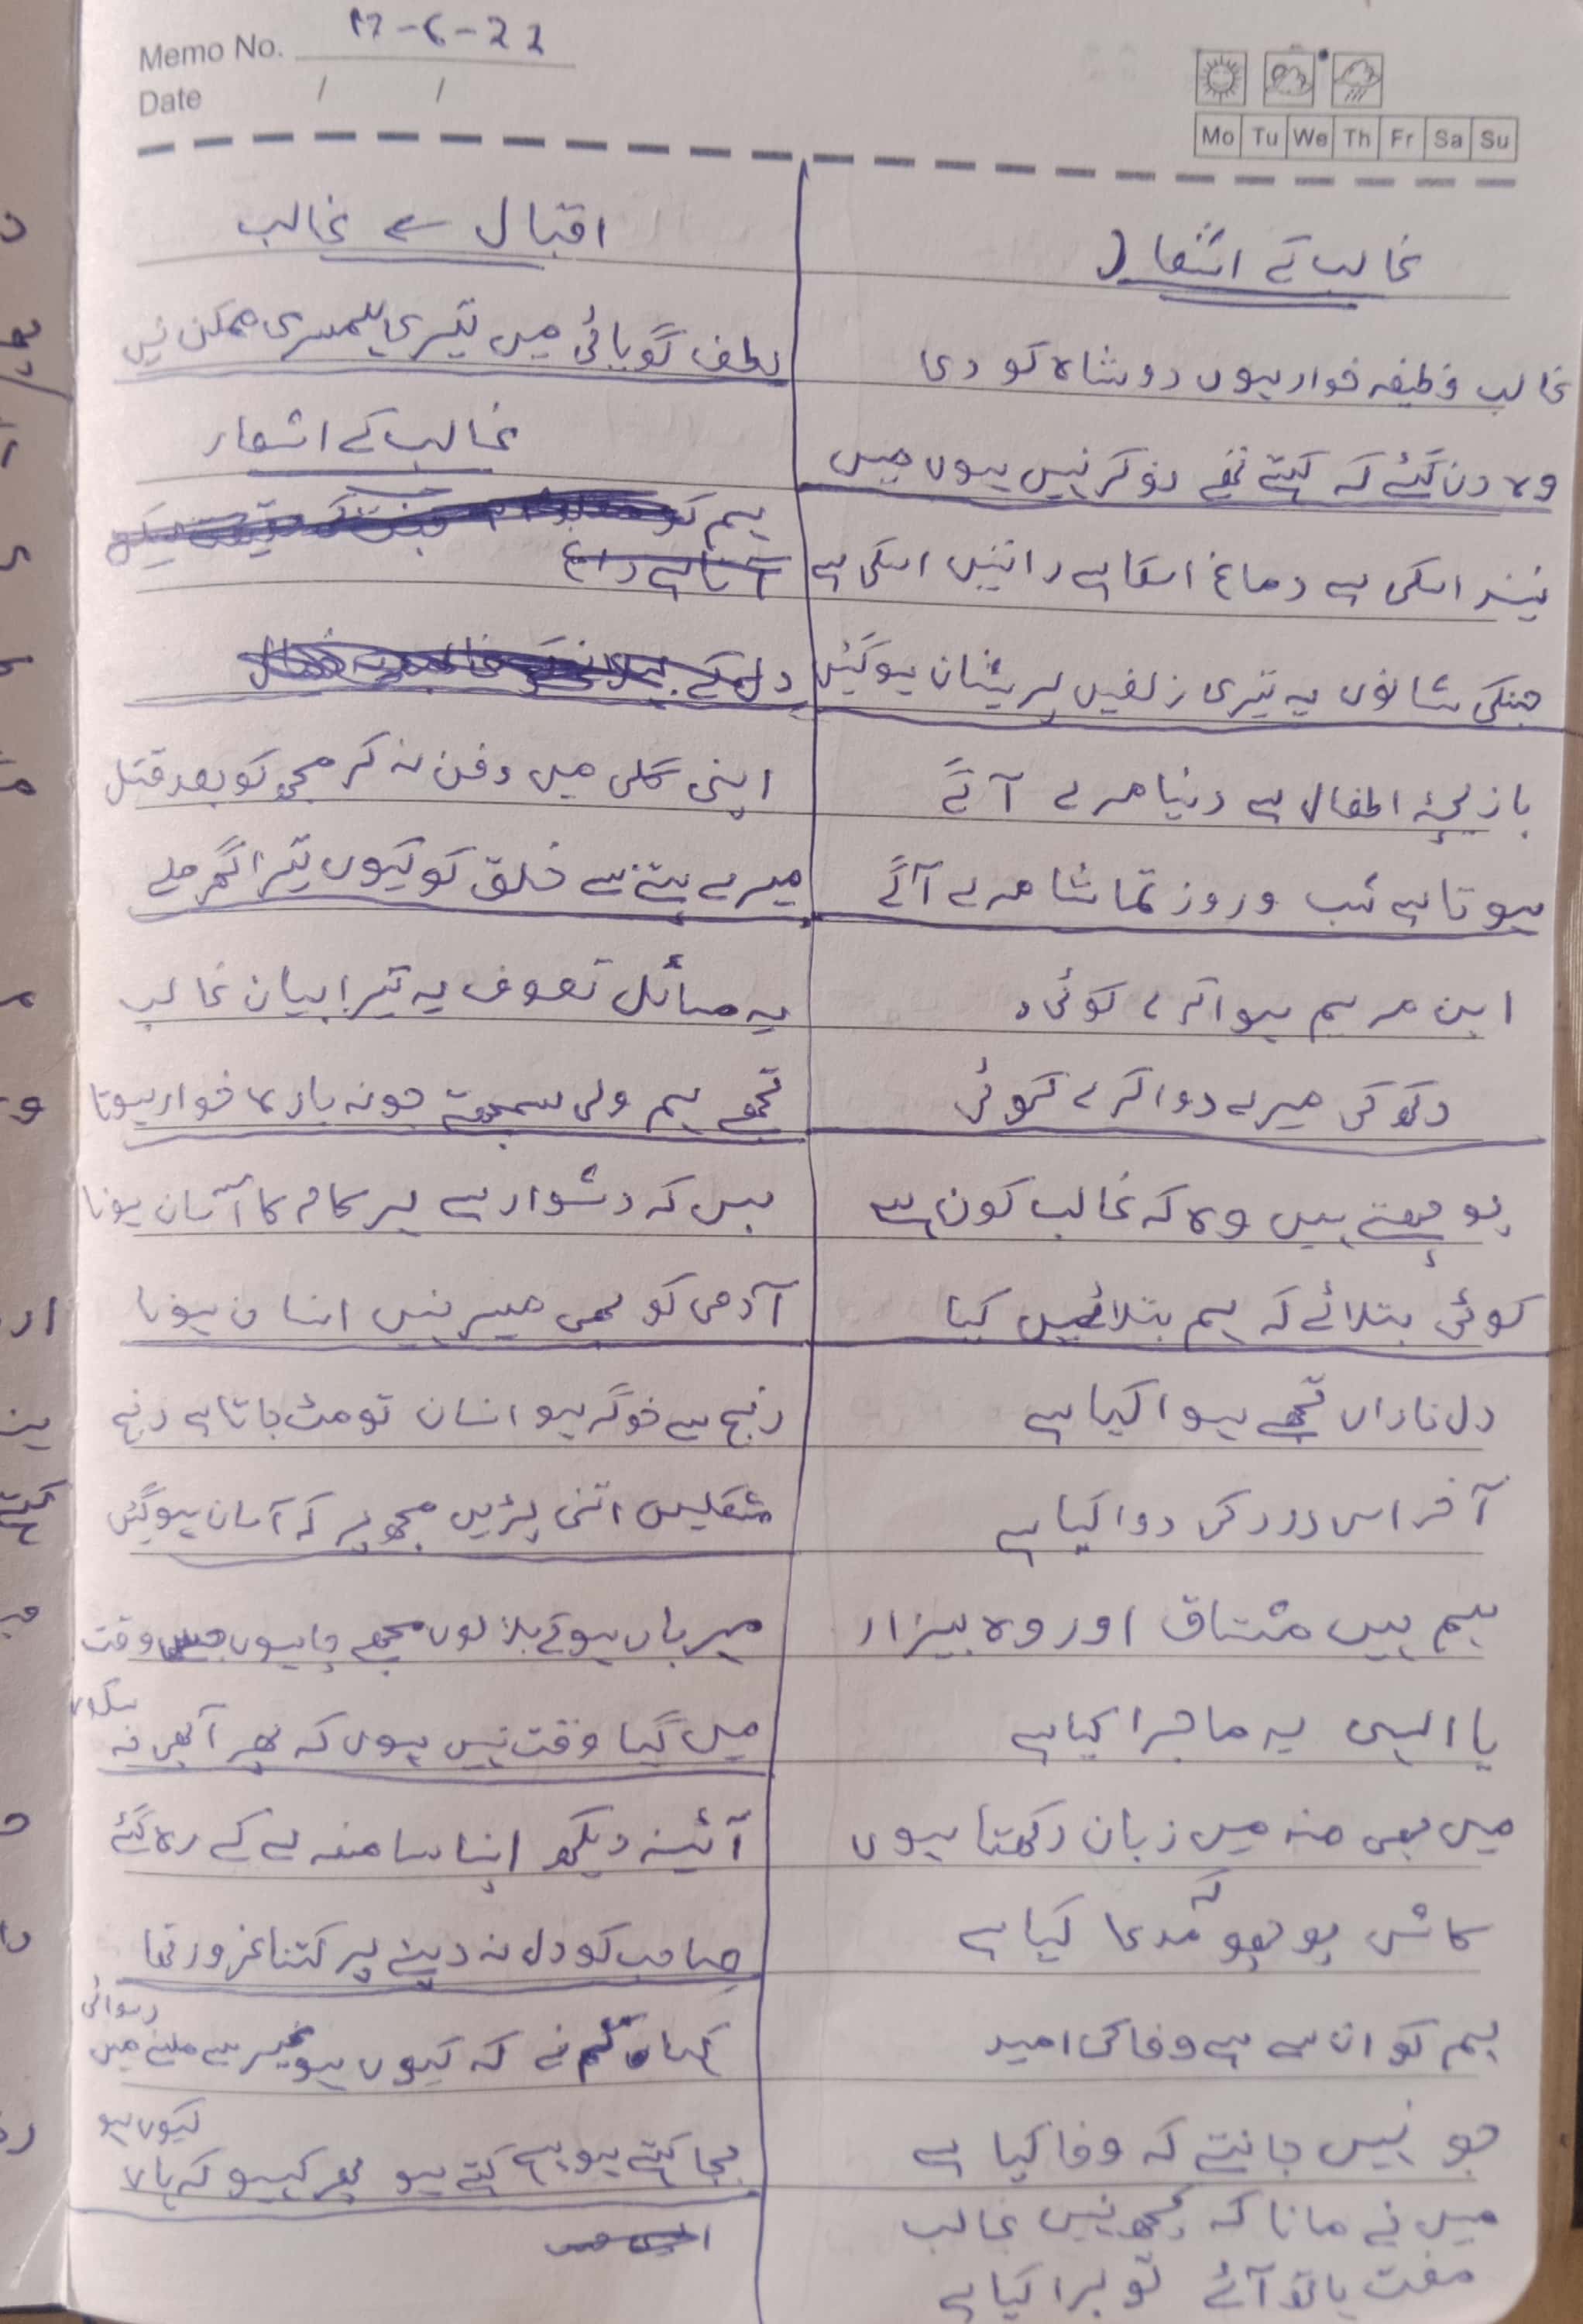 Memo No. ١٢-٤-22
Date / /
Mo Tu We Th Fr Sa Su
غالب کے اشعار
غالب وظیفہ خوار ہوں دو شاہ کو دعا
وہ دن گئے کہ کہتے تھے نوکر نہیں ہوں میں
نیند اسکی ہے دماغ اسکا ہے راتیں اسکی ہے
جنکی شانوں پہ تیری زلفیں پریشان ہوگئیں
بازیچۂ اطفال ہے دنیا مرے آگے
ہوتا ہے شب و روز تماشا مرے آگے
ابن مریم ہوا کرے کوئی
دکھ کی میرے دوا کرے کوئی
پوچھتے ہیں وہ کہ غالب کون ہے
کوئی بتلائے کہ ہم بتلائیں کیا
دل ناداں تجھے ہوا کیا ہے
آخر اس درد کی دوا کیا ہے
ہم ہیں مشتاق اور وہ بیزار
یا الہی یہ ماجرا کیا ہے
میں بھی منہ میں زبان رکھتا ہوں
کاش پوچھو کہ مدعا کیا ہے
ہم کو ان سے ہے وفا کی امید
جو نہیں جانتے کہ وفا کیا ہے
میں نے مانا کہ کچھ نہیں غالب
مفت ہاتھ آئے تو برا کیا ہے
اقبال سے غالب
لطف گویائی میں تیری ہمسری ممکن نہیں
غالب کے اشعار
ہم کو
آتا ہے داغ
دل کے
اپنی گلی میں دفن نہ کر مجھ کو بعد قتل
میرے پتے سے خلق کو کیوں تیرا گھر ملے
یہ مسائل تصوف یہ تیرا بیان غالب
تجھے ہم ولی سمجھتے جو نہ بادہ خوار ہوتا
بس کہ دشوار ہے ہر کام کا آسان ہونا
آدمی کو بھی میسر نہیں انسان ہونا
رنج سے خوگر ہو انسان تو مٹ جاتا ہے رنج
مشکلیں اتنی پڑیں مجھ پر کہ آسان ہوگئیں
مہرباں ہوکے بلالوں مجھے چاہوں جس وقت
میں گیا وقت نہیں ہوں کہ پھر آبھی نہ سکوں
آئینہ دیکھ اپنا سا منہ لے کے رہ گئے
صاحب کو دل نہ دینے پر کتنا غرور تھا
کہا تم نے کہ کیوں ہو غیر سے ملنے میں رسوائی
بجا کہتے ہو سچ کہتے ہو پھر کہیو کہ ہاں کیوں ہو